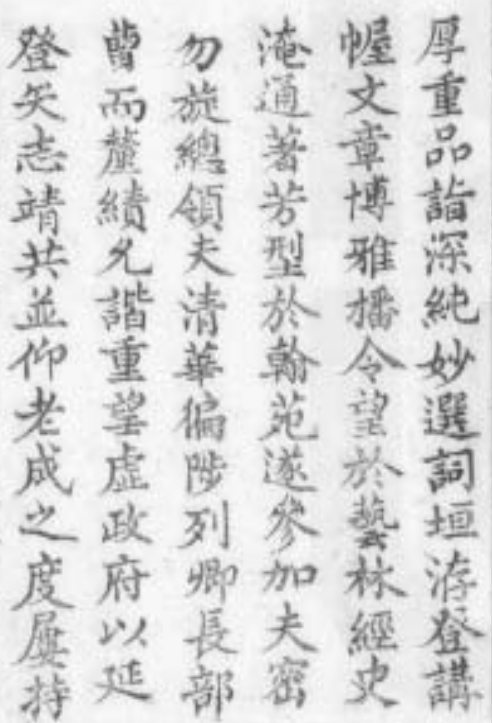 厚重品詣深純妙選詞垣洊登講
幄文章博雅播令望於藝林經史
淹通著芳型於翰苑遂參加夫密
勿旋總領夫清華徧陟列卿長部
曹而釐績允諧重望虛政府以延
登矢志靖共並仰老成之度屢持